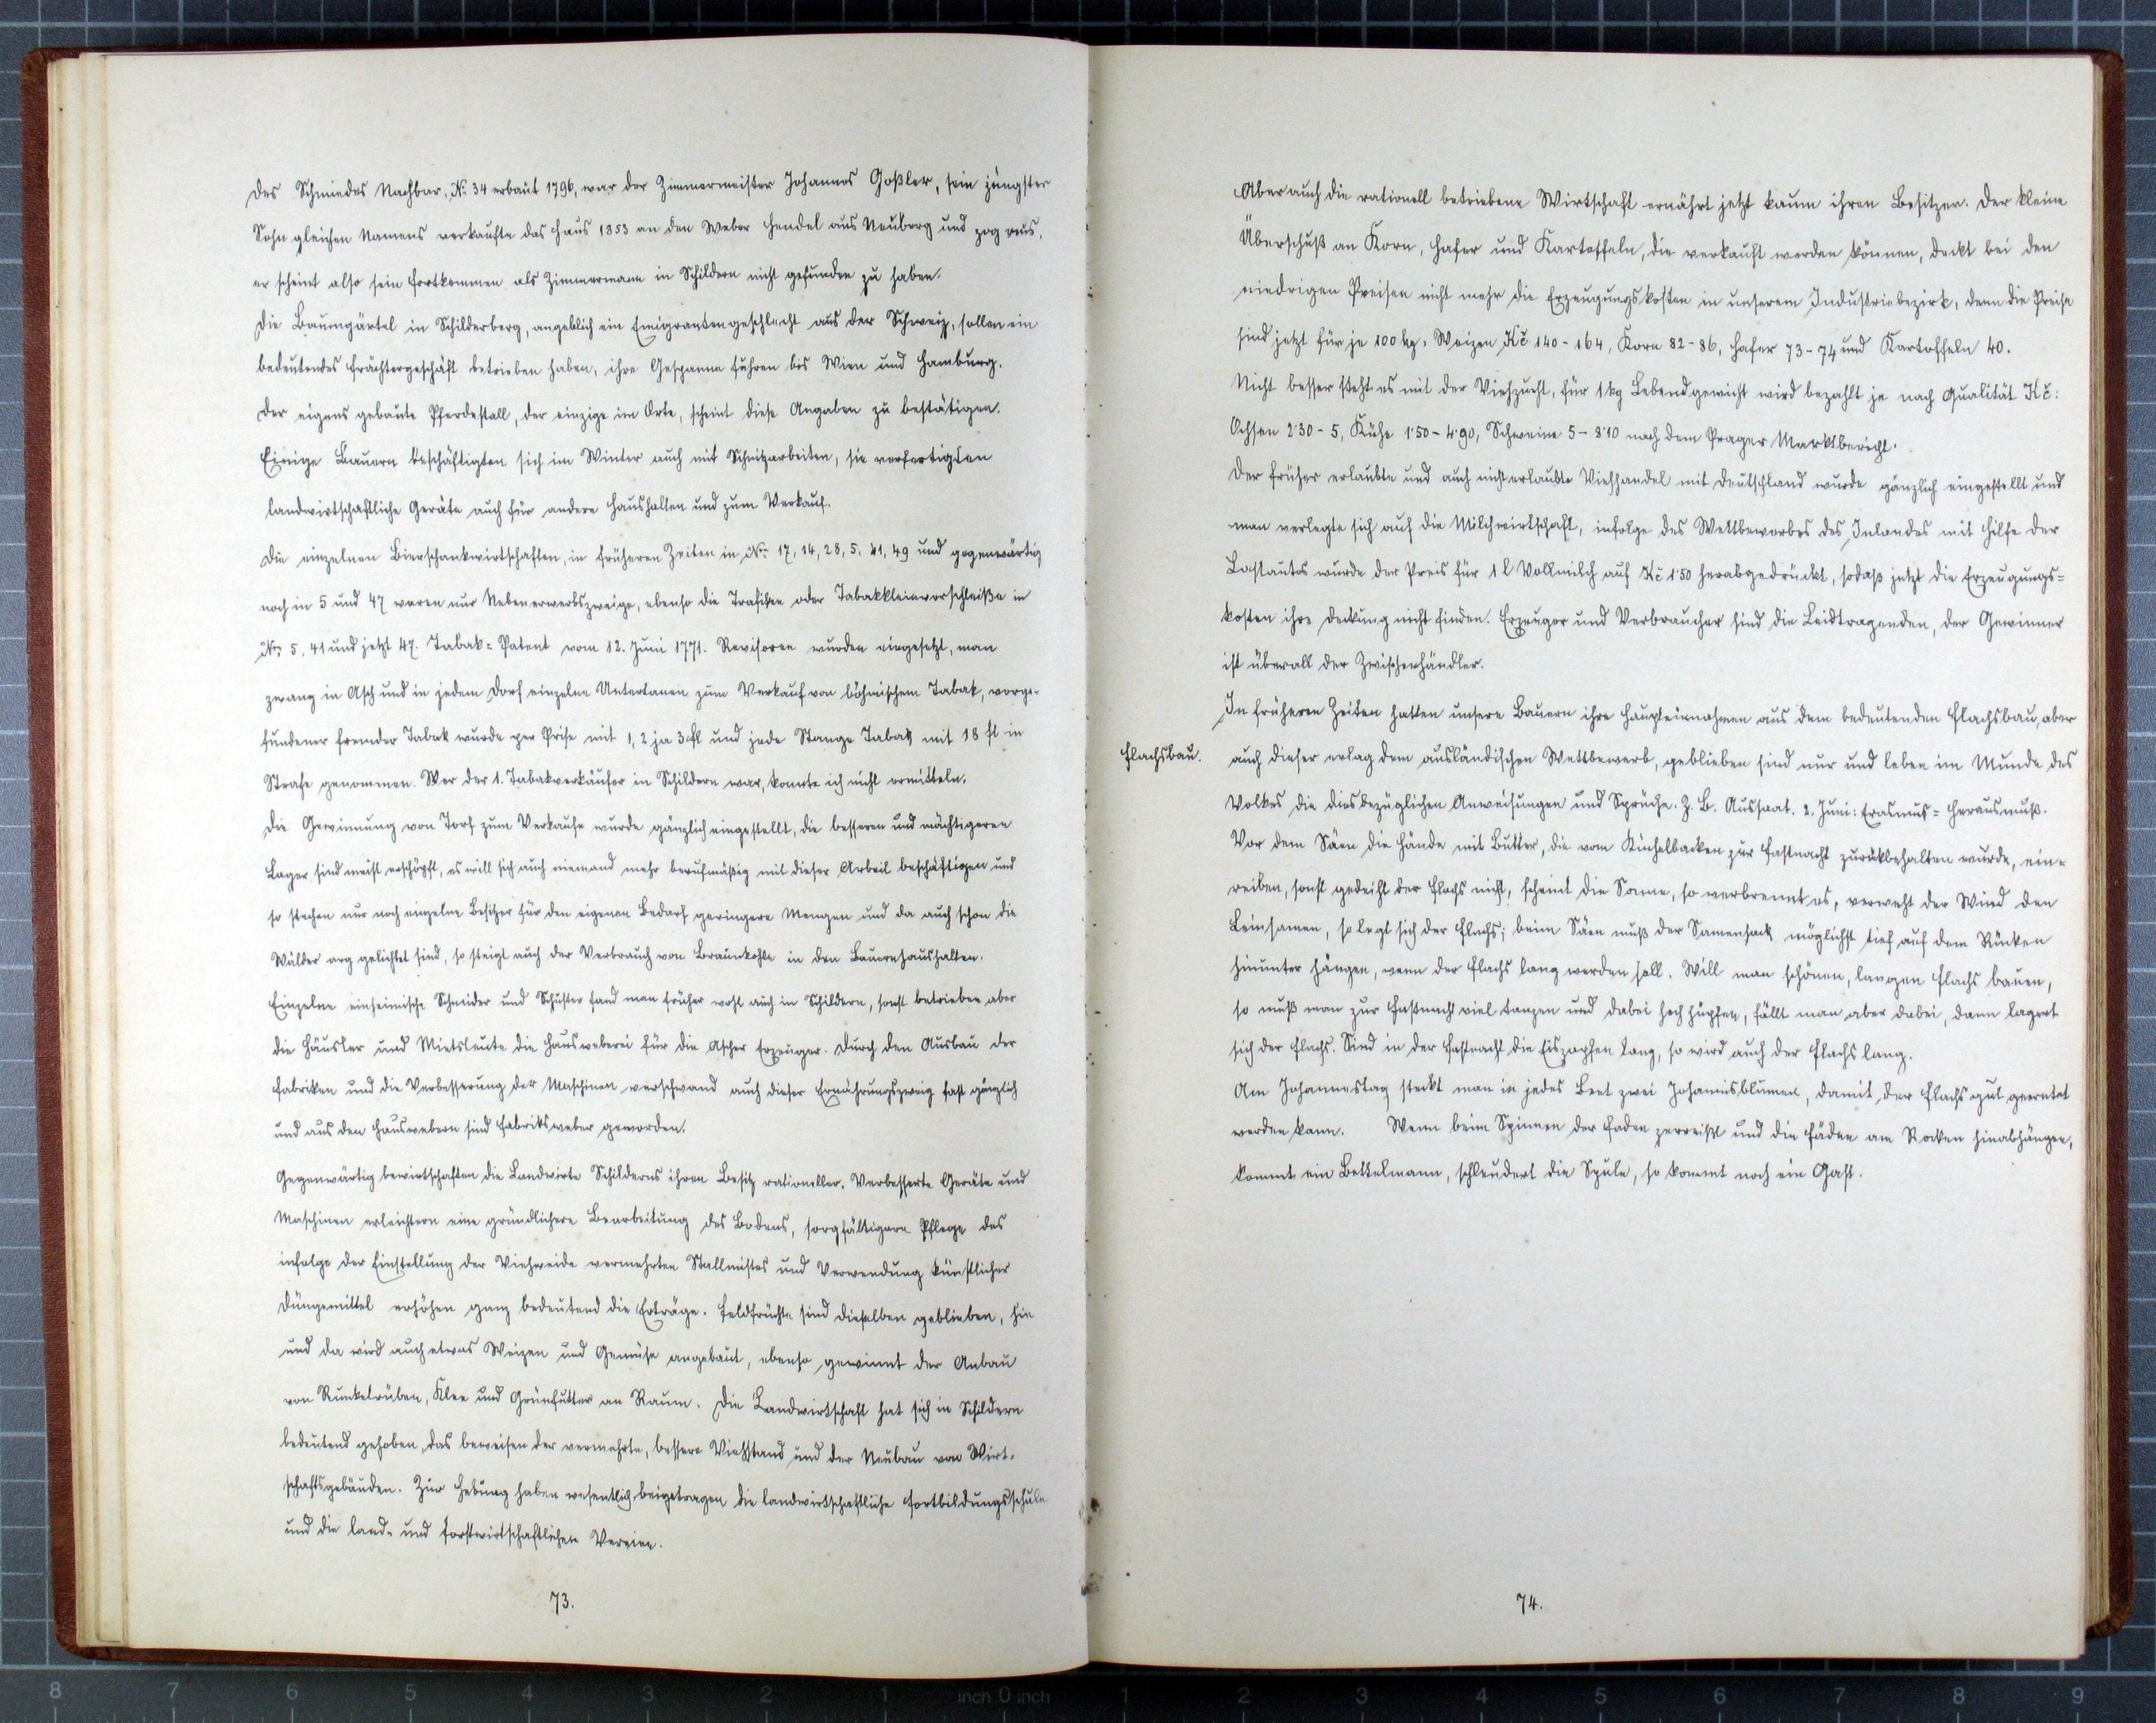 Des Schmiedes Nachbar, No 34 erbaut 1796, war der Zimmermeister Johannes Goßler, sein jüngster
Sohn gleichen Namens verkaufte das Haus 1853 an den Weber Hendel aus Neuberg und zog aus,
er scheint also sein Fortkommen als Zimmermann in Schildern nicht gefunden zu haben.
Die Baumgärtel in Schilderberg, angeblich ein Emigrantengeschlecht aus der Schweiz, sollen ein
bedeutendes Frächtergeschäft betrieben haben, ihre Gespanne fuhren bis Wien und Hamburg.
Der eigens gebaute Pferdestall, der einzige im Orte, scheint diese Angaben zu bestätigen.
Einige Bauern beschäftigten sich im Winter auch mit Schnitzarbeiten, sie verfertigten
landwirtschaftliche Geräte auch für andere Haushalten und zum Verkauf.
Die einzelnen Bierschankwirtschaften, in früheren Zeiten in No 17, 14, 28, 5, 41, 49 und gegenwärtig
noch in 5 und 47 waren nur Nebenerwerbszweige, ebenso die Trafiken oder Tabakkleinverschleiße in
No 5, 41 und jetzt 47. Tabak=Patent vom 12. Juni 1771. Revisoren wurden eingesetzt, man
zwang in Asch und in jedem Dorf einzelne Untertanen zum Verkauf von böhmischem Tabak, vorge-
fundener fremder Tabak wurde per Prise mit 1, 2 ja 3 fl und jede Stange Tabak mit 18 fl in
Strafe genommen. Wer der 1. Tabakverkäufer in Schildern war, konnte ich nicht ermitteln.
Die Gewinnung von Torf zum Verkaufe wurde gänzlich eingestellt, die besseren und mächtigeren
Lager sind meist erschöpft, es will sich auch niemand mehr berufmäßig mit dieser Arbeit beschäftigen und
so stechen nur noch einzelne Besitzer für den eigenen Bedarf geringere Mengen und da auch schon die
Wälder arg gelichtet sind, so steigt auch der Verbrauch von Braunkohle in den Bauernhaushalten.
Einzelne einheimische Schneider und Schuster fand man früher wohl auch in Schildern, sonst betrieben aber
die Häusler und Mietsleute die Hausweberei für die Ascher Erzeuger. Durch den Ausbau der
Fabriken und die Verbesserung der Maschinen verschwand auch dieser Ernährungszweig fast gänzlich
und aus den Hauswebern sind Fabriksweber geworden.
Gegenwärtig bewirtschaften die Landwirte Schilderns ihren Besitz rationeller. Verbesserte Geräte und
Maschinen erleichtern eine gründlichere Bearbeitung des Bodens, sorgfältigere Pflege des
infolge der Einstellung der Viehweide vermehrten Stallmistes und Verwendung künstlicher
Düngemittel erhöhen ganz bedeutend die Erträge. Feldfrüchte sind dieselben geblieben, hie
und da wird auch etwas Weizen und Gemüse angebaut, ebenso gewinnt der Anbau
von Runkelrüben, Klee und Grünfutter an Raum. Die Landwirtschaft hat sich in Schildern
bedeutend gehoben, das beweisen der vermehrte, bessere Viehstand und der Neubau von Wirt-
schaftsgebäuden. Zur Hebung haben wesentlich beigetragen die landwirtschaftliche Fortbildungsschule
und die land- und forstwirtschaftlichen Vereine.
73.
Aber auch die rationell betriebene Wirtschaft ernährt jetzt kaum ihren Besitzer. Der kleine
Überschuß an Korn, Hafer und Kartoffeln, die verkauft werden können, deckt bei den
niedrigen Preisen nicht mehr die Erzeugungskosten in unserem Industriebezirk, denn die Preise
sind jetzt für je 100 kg: Weizen Kč 140-164, Korn 82-86, Hafer 73-74 und Kartoffeln 40.
Nicht besser steht es mit der Viehzucht, für 1 kg Lebendgewicht wird bezahlt je nach Qualität Kč:
Ochsen 2·30-5, Kühe 1·50-4·90, Schweine 5-8·10 nach dem Prager Marktbericht.
Der früher erlaubte und auch nichterlaubte Viehhandel mit Deutschland wurde gänzlich eingestellt und
man verlegte sich auf die Milchwirtschaft, infolge des Wettbewerbes des Inlandes mit Hilfe der
Lastautos wurde der Preis für 1 l Vollmilch auf Kč 1·50 herabgedrückt, sodaß jetzt die Erzeugungs=
kosten ihre Deckung nicht finden. Erzeuger und Verbraucher sind die Leidtragenden, der Gewinner
ist überall der Zwischenhändler.
In früheren Zeiten hatten unsere Bauern ihre Haupteinnahmen aus dem bedeutenden Flachsbau, aber
Flachsbau.
auch dieser erlag dem ausländischen Wettbewerb, geblieben sind nur und leben im Munde des
Volkes die diesbezüglichen Anweisungen und Sprüche. Z. B. Aussaat. 2. Juni: Erasmus=Herausmuß.
Vor dem Säen die Hände mit Butter, die vom Küchelbacken zur Fastnacht zurückbehalten wurde, ein-
reiben, sonst gedeiht der Flachs nicht, scheint die Sonne, so verbrennt es, verweht der Wind den
Leinsamen, so legt sich der Flachs; beim Säen muß der Samensack möglichst tief auf dem Rücken
hinunter hängen, wenn der Flachs lang werden soll. Will man schönen, langen Flachs bauen,
so muß man zur Fastnacht viel tanzen und dabei hoch hüpfen, fällt man aber dabei, dann lagert
sich der Flachs. Sind in der Fastnacht die Eiszapfen lang, so wird auch der Flachs lang.
Am Johannestag steckt man in jedes Beet zwei Johannisblumen, damit der Flachs gut geerntet
werden kann. Wenn beim Spinnen der Faden zerreißt und die Fäden am Rocken hinabhängen,
kommt ein Bettelmann, schleudert die Spule, so kommt noch ein Gast.
74.
8 7 6 5 4 3 2 1 inch 0 inch 1 2 3 4 5 6 7 8 9